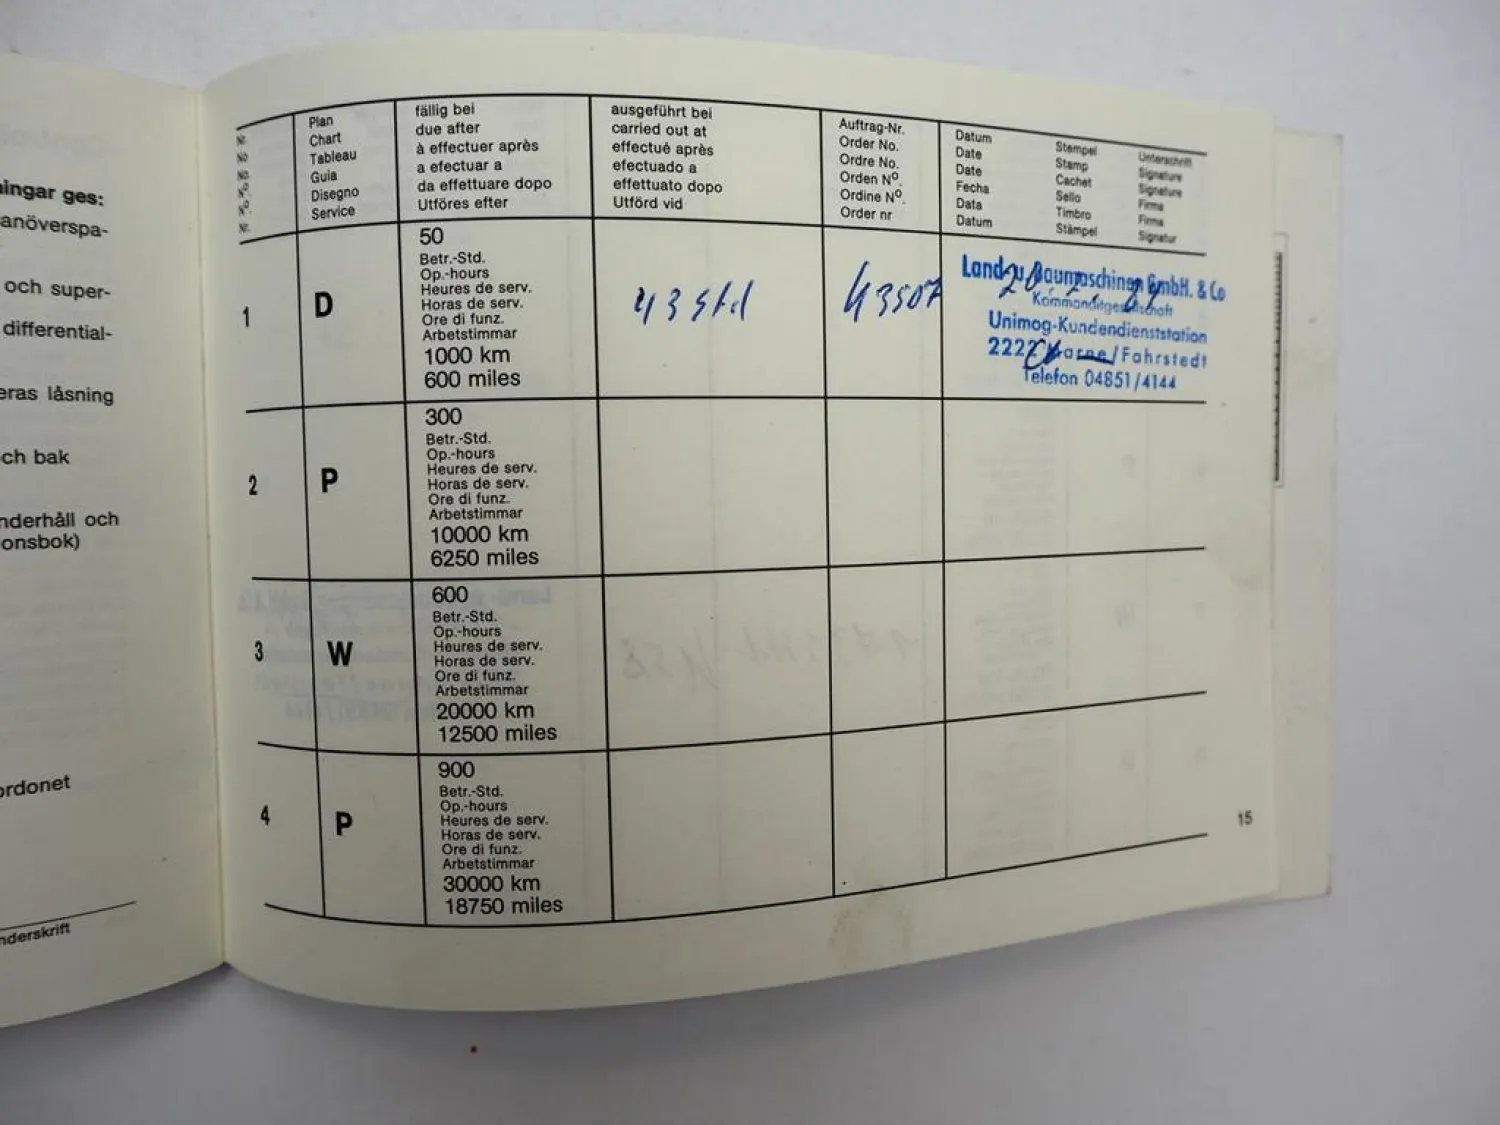 ningar ges:
anöverspa-
och super-
differential-
eras låsning
ch bak
nderhåll och
onsbok)
ordonet
nderskrift
Nr.
No
No.
Nº
Nº.
Nr.
Plan
Chart
Tableau
Guia
Disegno
Service
fällig bei
due after
à effectuer après
a efectuar a
da effettuare dopo
Utföres efter
ausgeführt bei
carried out at
effectué après
efectuado a
effettuato dopo
Utförd vid
Auftrag-Nr.
Order No.
Ordre No.
Orden Nº.
Ordine Nº.
Order nr
Datum
Date
Date
Fecha
Data
Datum
Stempel
Stamp
Cachet
Sello
Timbro
Stämpel
Unterschrift
Signature
Signature
Firma
Firma
Signatur
1
D
50
Betr.-Std.
Op.-hours
Heures de serv.
Horas de serv.
Ore di funz.
Arbetstimmar
1000 km
600 miles
43 Std
43507
Land- u. Baumaschinen GmbH. & Co
Kommanditgesellschaft
Unimog-Kundendienststation
2222 Marne/Fahrstedt
Telefon 04851/4144
2
P
300
Betr.-Std.
Op.-hours
Heures de serv.
Horas de serv.
Ore di funz.
Arbetstimmar
10000 km
6250 miles
3
W
600
Betr.-Std.
Op.-hours
Heures de serv.
Horas de serv.
Ore di funz.
Arbetstimmar
20000 km
12500 miles
4
P
900
Betr.-Std.
Op.-hours
Heures de serv.
Horas de serv.
Ore di funz.
Arbetstimmar
30000 km
18750 miles
15